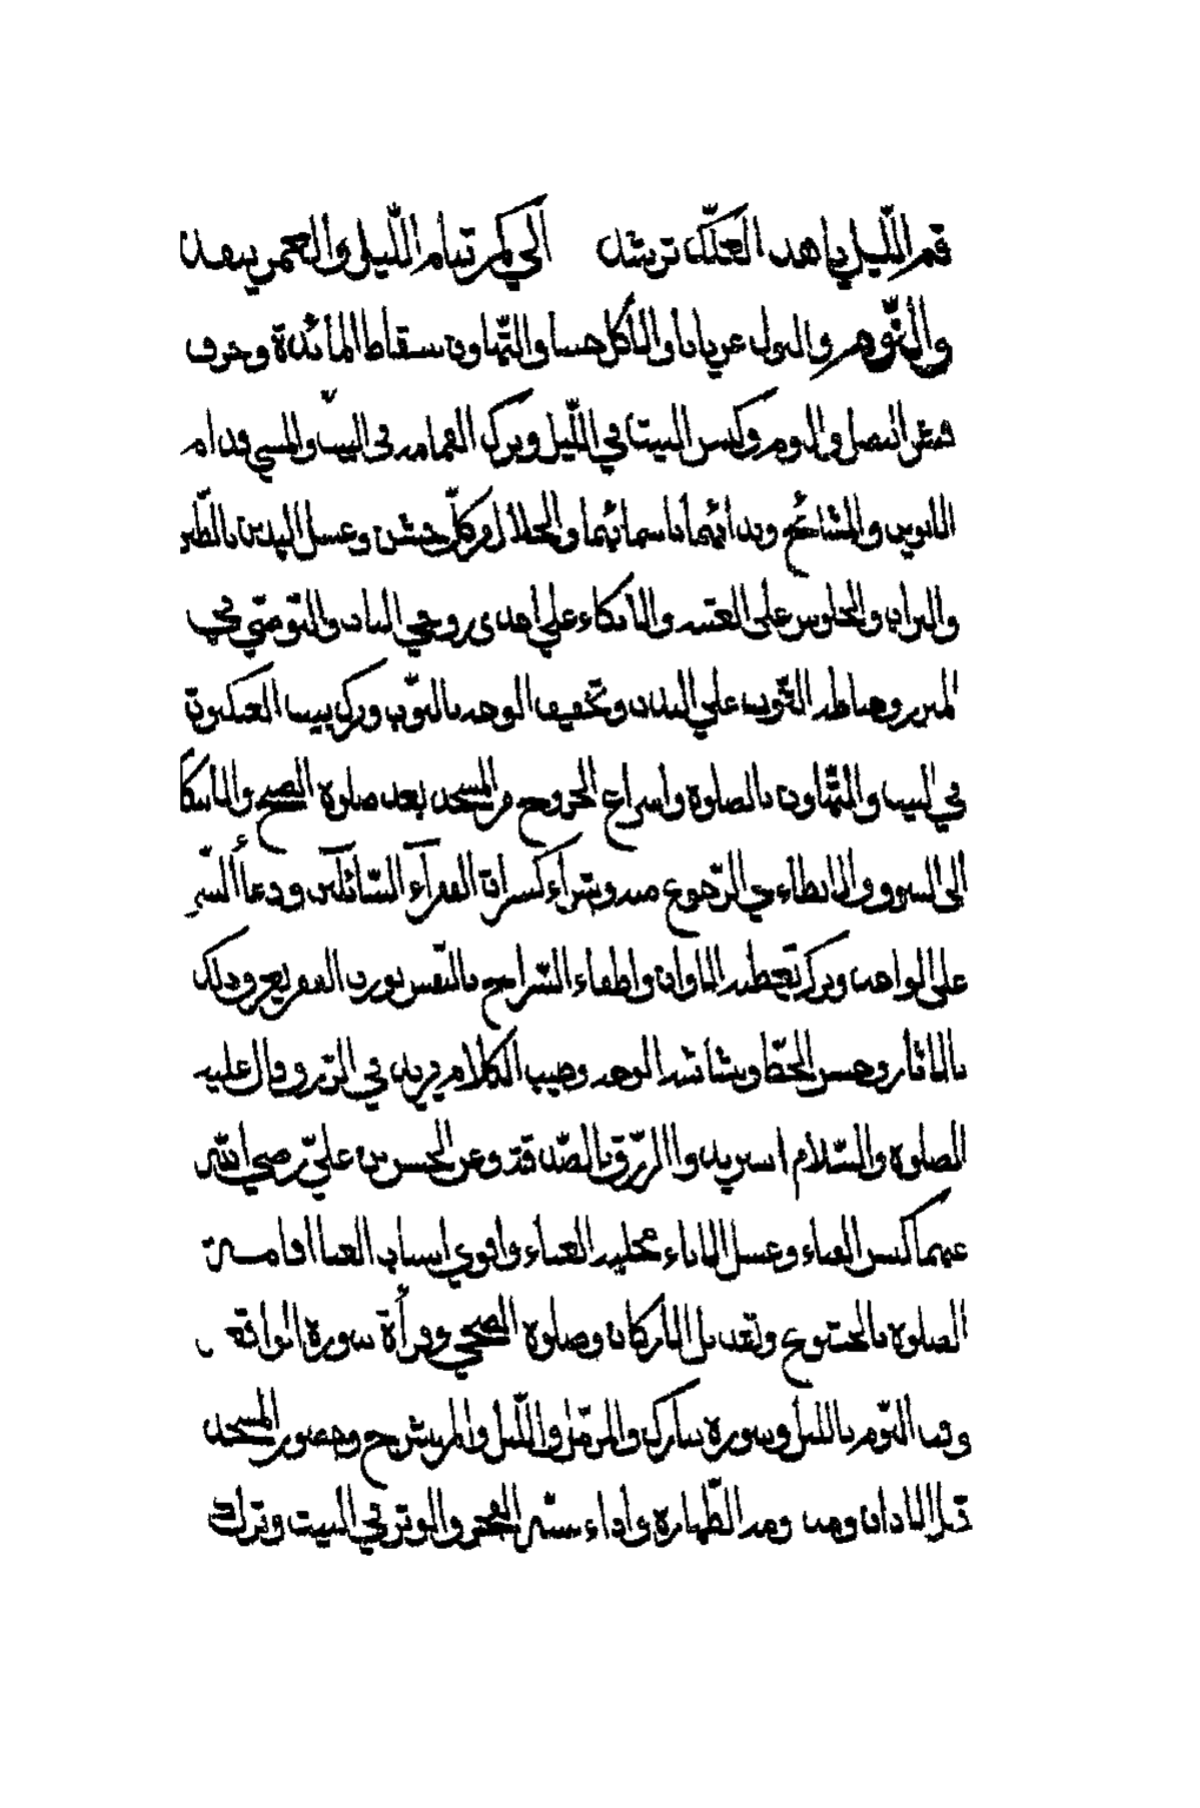 قم الليل يا هذا لعلك ترشد الى كم تنام الليل والعمر ينفد
والنوم والبول عريانا والأكل جنبا والتهاون بسقاط المائدة وحرق
قشر البصل والثوم وكنس البيت في الليل وترك القمامة في البيت والمشي قدام
المشائخ ونداؤهما باسمائهما والخلال بكل خشب وغسل اليدين بالطين
والتراب والجلوس على العتبة والاتكاء على احدى زوجي الباب والتوضي في
المبرز وخياطة الثوب على البدن وتجفيف الوجه بالثوب وترك بيت العنكبوت
في البيت والتهاون بالصلوة واسراع الخروج من المسجد بعد صلوة الصبح والابتكار
الى السوق والابطاء في الرجوع منه وشراء كسرات الفقراء السائلين ودعاء الشر
على الوالد وترك تخمير الاواني واطفاء السراج بالنفس يورث الفقر يعرف ذلك
بالاثار وحسن الخط وبشاشة الوجه وطيب الكلام يزيد في الرزق وقال عليه
الصلوة والسلام استنزلوا الرزق بالصدقة وعن الحسن بن علي رضي الله
عنهما كنس الفناء وغسل الاناء مجلبة الغناء واقوى اسباب الغنا اقامة
الصلوة بالخشوع وتعديل الاركان وصلوة الضحى وقراءة سورة الواقعة
وقت النوم بالليل وسورة تبارك والمزمل والليل والم نشرح وحضور المسجد
قبل الاذان ومداومة الطهارة واداء سنة الفجر والوتر في البيت وترك